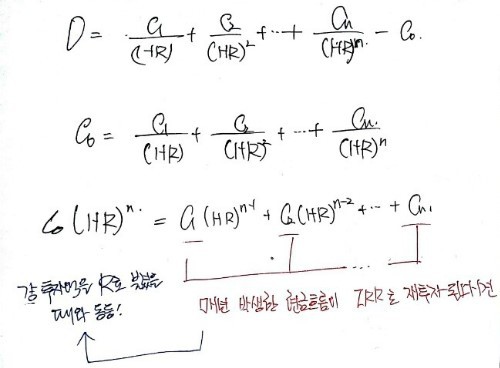 0 = C₁/(1+R) + C₂/(1+R)² + ... + Cn/(1+R)ⁿ - C₀.
C₀ = C₁/(1+R) + C₂/(1+R)² + ... + Cn/(1+R)ⁿ
C₀(1+R)ⁿ = C₁(1+R)ⁿ⁻¹ + C₂(1+R)ⁿ⁻² + ... + Cn
...
매년 발생한 현금흐름이 IRR로 재투자된다면
투자액을 IR로
때와 동등!